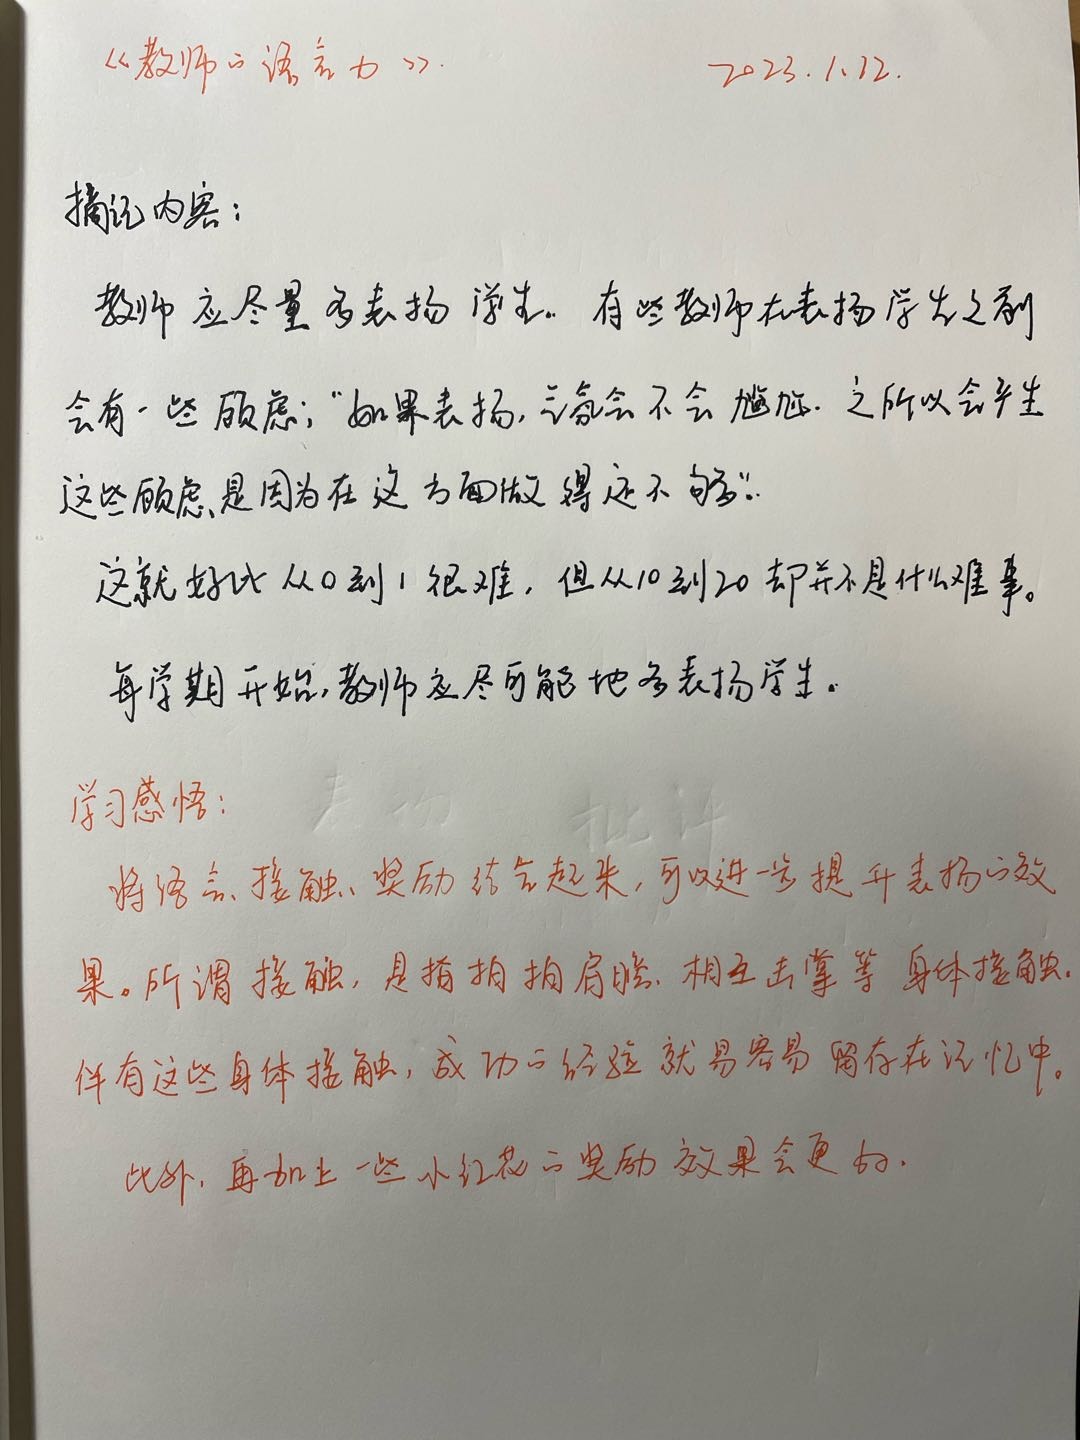 《教师的语言力》. 2023.1.12.
摘记内容：
教师应尽量多表扬学生。有些教师在表扬学生之前
会有一些顾虑；“如果表扬，会不会尴尬. 之所以会产生
这些顾虑、是因为在这方面做得还不够”.
这就好比从0到1很难，但从10到20却并不是什么难事。
每学期开始，教师应尽可能地多表扬学生。
学习感悟：
表扬 批评
将语言、接触、奖励结合起来，可以进一步提升表扬的效
果。所谓接触，是指拍拍肩膀、相互击掌等身体接触.
伴有这些身体接触，成功的经验就易容易留存在记忆中。
此外，再加上一些小红花的奖励效果会更好.